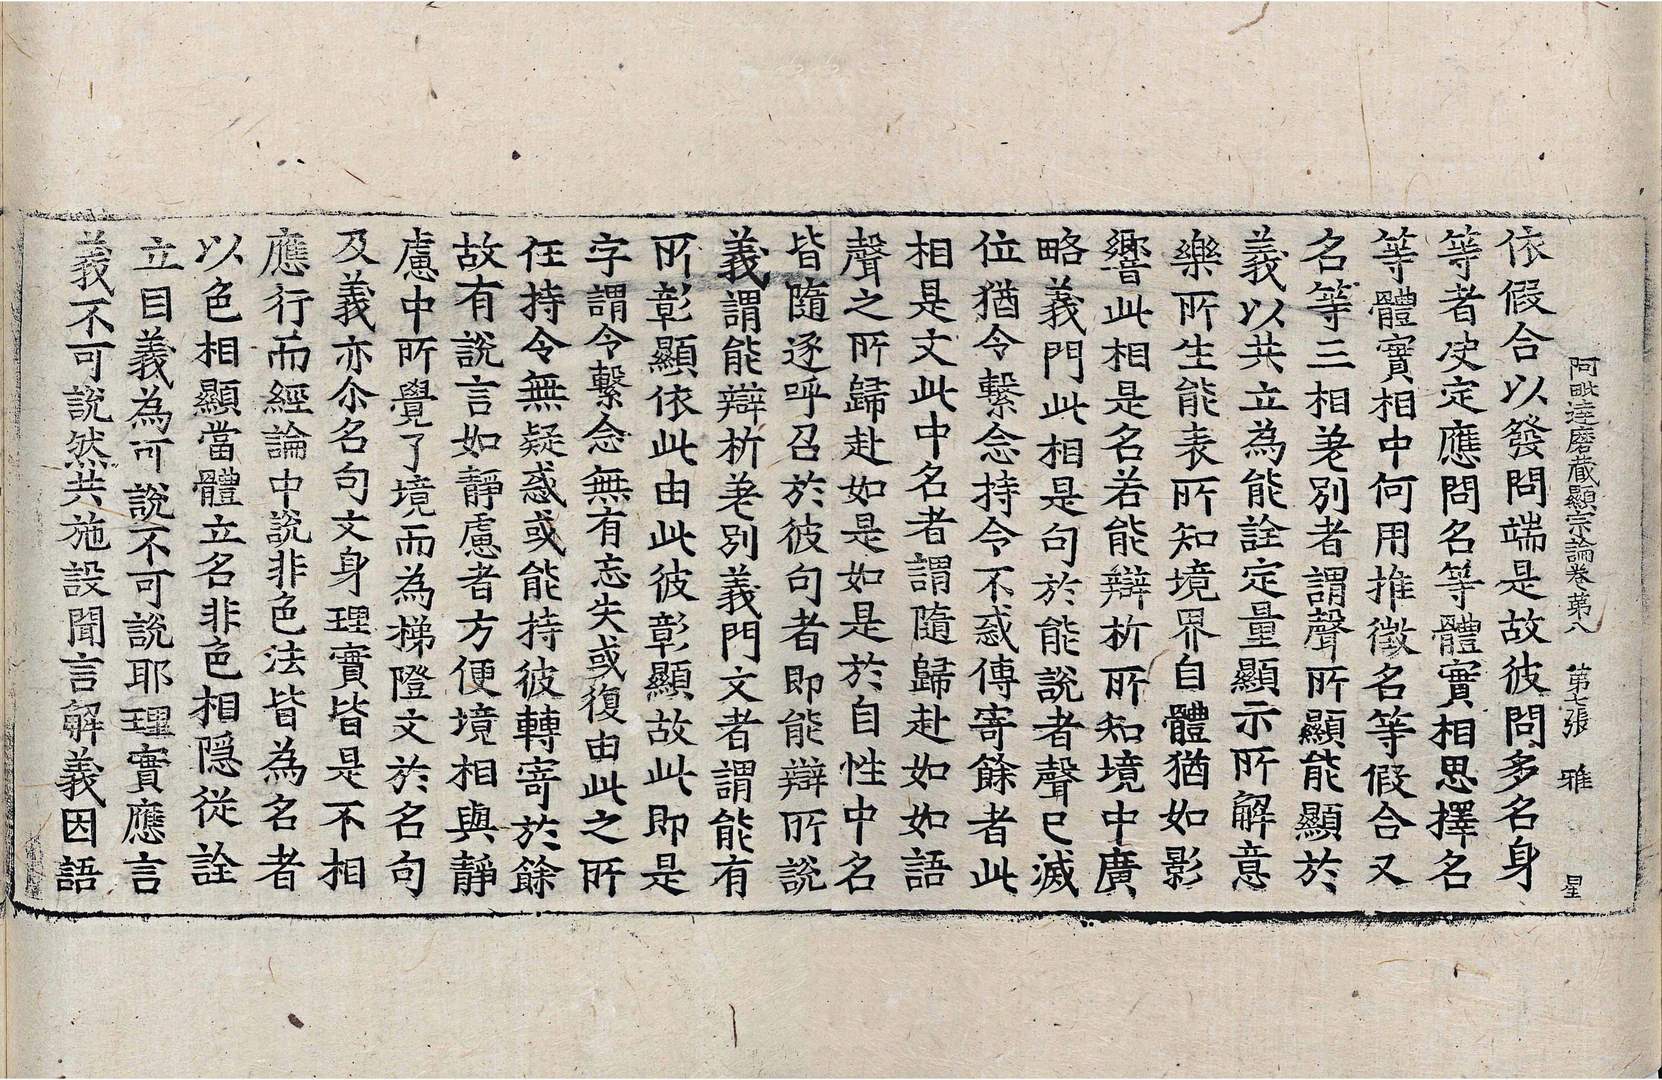 阿毗達磨藏顯宗論卷第八　第七張　雅　星
依假合以發問端是故彼問多名身
等者决定應問名等體實相思擇名
等體實相中何用推徵名等假合又
名等三相差別者謂聲所顯能顯於
義以共立為能詮定量顯示所解意
樂所生能表所知境界自體猶如影
響此相是名若能辯析所知境中廣
略義門此相是句於能說者聲已滅
位猶令繫念持令不惑傳寄餘者此
相是文此中名者謂隨歸赴如如語
聲之所歸赴如是如是於自性中名
皆隨逐呼召於彼句者即能辯所說
義謂能辯析差別義門文者謂能有
所彰顯依此由此彼彰顯故此即是
字謂令繫念無有忘失或復由此之所
任持令無疑惑或能持彼轉寄於餘
故有說言如靜慮者方便境相與靜
慮中所覺了境而為梯隥文於名句
及義亦尒名句文身理實皆是不相
應行而經論中說非色法皆為名者
以色相顯當體立名非色相隱從詮
立目義為可說不可說耶理實應言
義不可說然共施設聞言解義因語